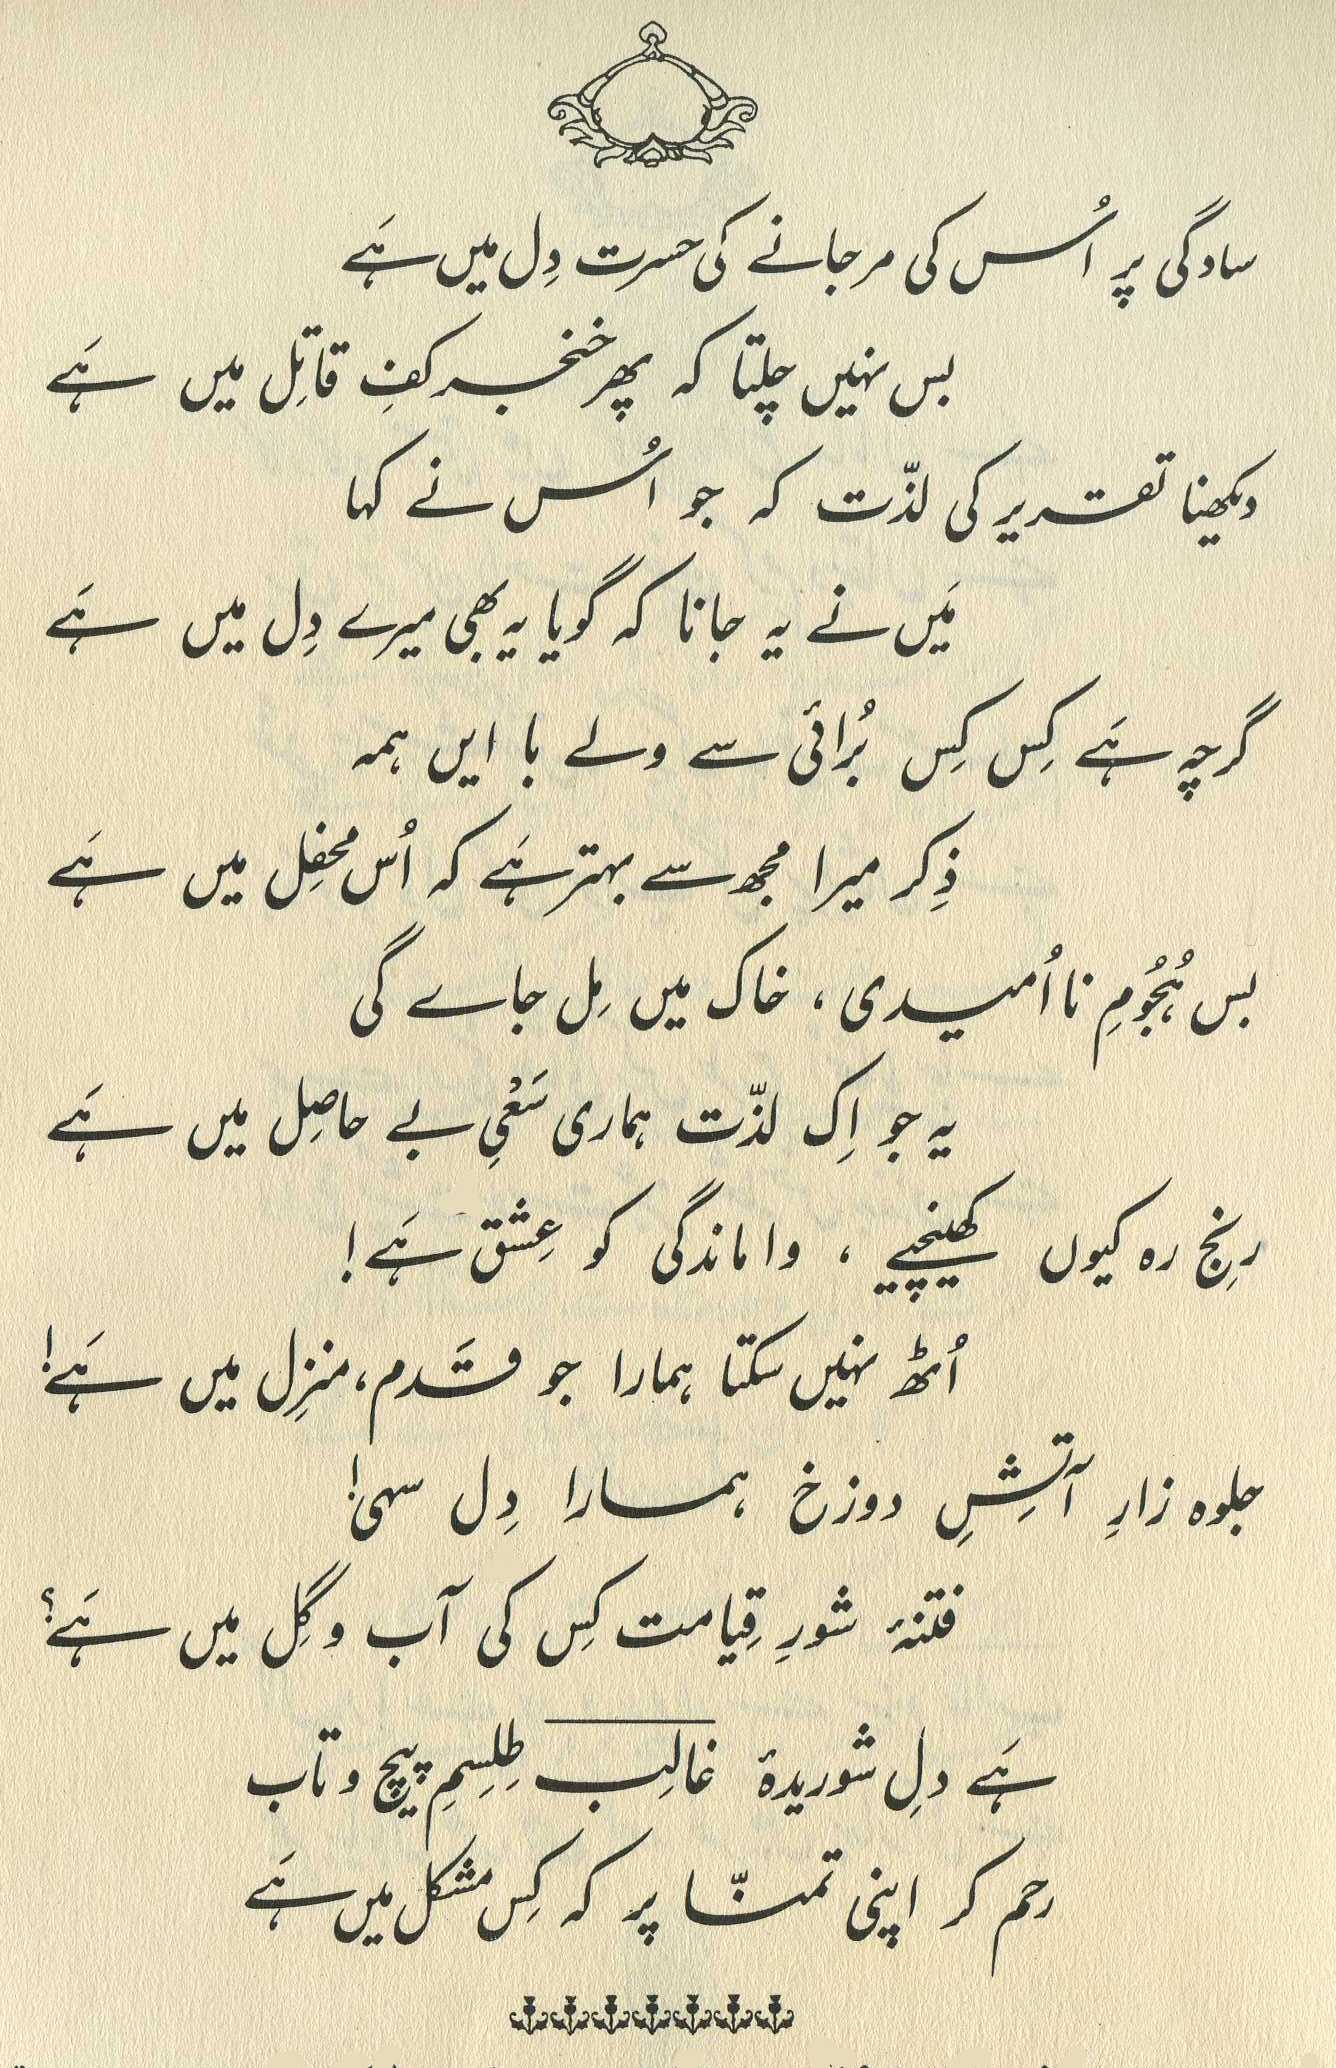 سادگی پر اُس کی مر جانے کی حسرت دِل میں ہَے
بس نہیں چلتا کہ پھر خنجر کفِ قاتِل میں ہَے
دیکھنا تقریر کی لذّت کہ جو اُس نے کہا
مَیں نے یہ جانا کہ گویا یہ بھی میرے دِل میں ہَے
گرچہ ہَے کِس کِس بُرائی سے ولے با ایں ہمہ
ذِکر میرا مجھ سے بہتر ہَے کہ اُس محفِل میں ہَے
بس ہُجُومِ نا اُمیدی، خاک میں مِل جاے گی
یہ جو اِک لذّت ہماری سَعْیِ بے حاصِل میں ہَے
رنجِ رہ کیوں کھینچیے، واماندگی کو عِشق ہَے!
اُٹھ نہیں سکتا ہمارا جو قَدم، منزِل میں ہَے!
جلوہ زارِ آتشِ دوزخ ہمارا دِل سہی!
فتنۂ شورِ قِیامت کِس کی آب و گِل میں ہَے؟
ہَے دلِ شوریدۂ غالِب طِلِسمِ پیچ و تاب
رحم کر اپنی تمنّا پر کہ کِس مشکل میں ہَے